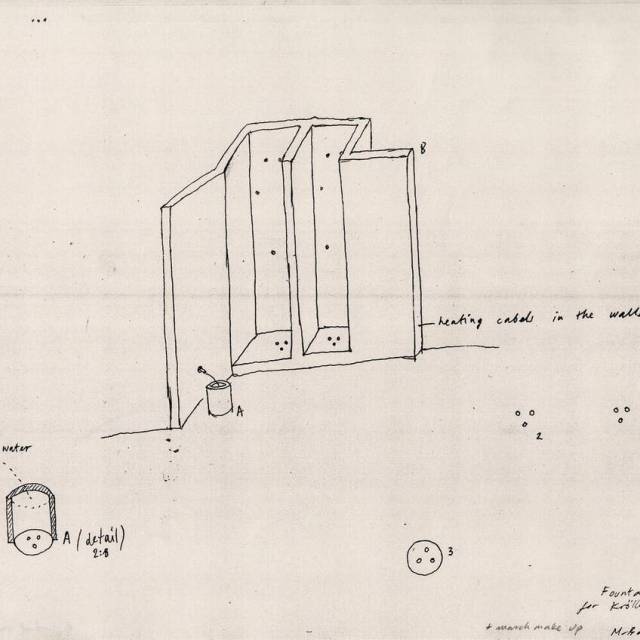 B
heating cabels in the walls
A
2
water
A (detail)
2:8
3
Founta
for Kröll
+ march make up
M.B